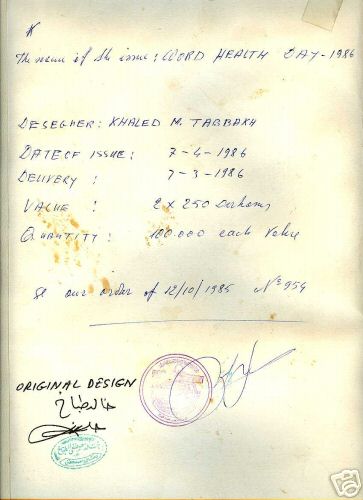 The name of the issue: WORD HEALTH DAY-1986
DESEGNER: KHALED M. TABBAKH
DATE OF ISSUE: 7-4-1986
DELIVERY: 7-3-1986
VALUE: 2 x 250 Dirhams
QUANTITY: 100.000 each value
our order of 12/10/1985 N° 954
ORIGINAL DESIGN
خالد طباخ